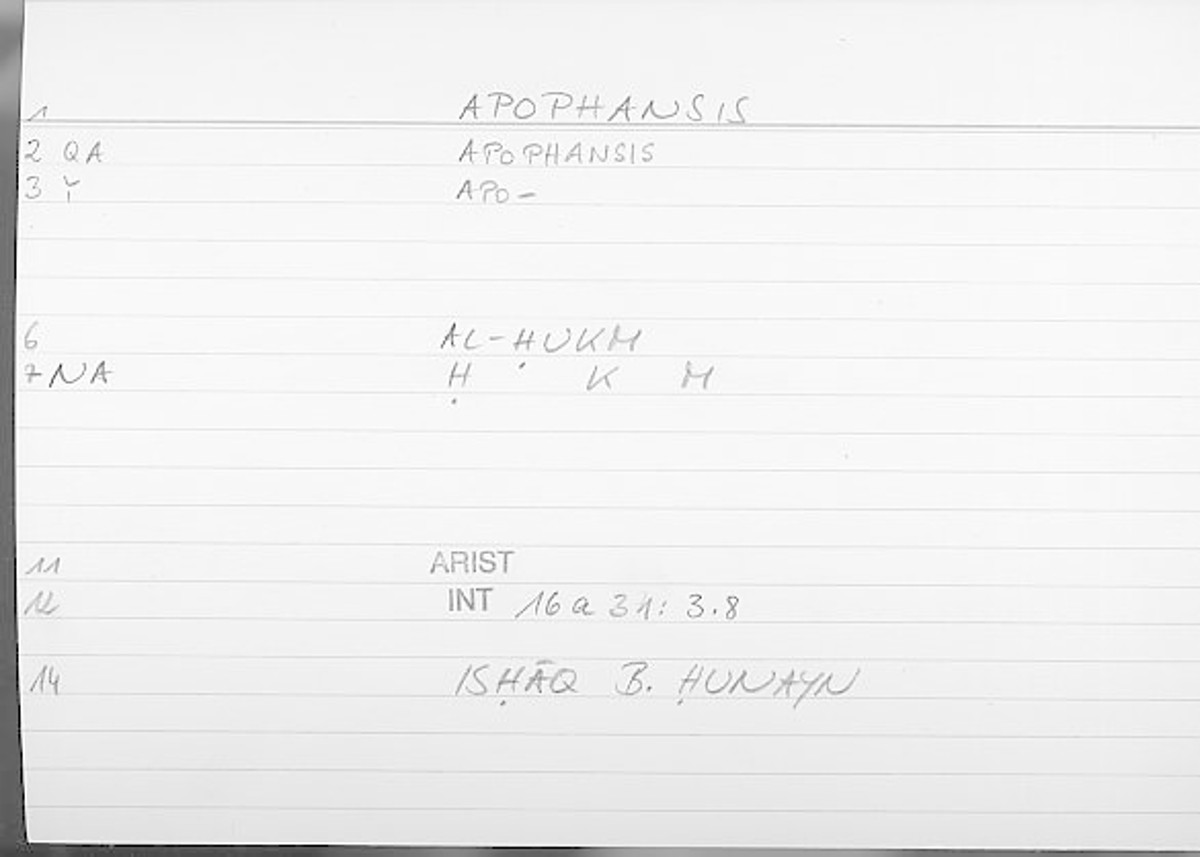 1 APOPHANSIS
2 QA APOPHANSIS
3 Ǐ APO-
6 AL-ḤUKM
7 NA Ḥ K M
11 ARIST
12 INT 16a 31: 3.8
14 ISḤĀQ B. ḤUNAYN